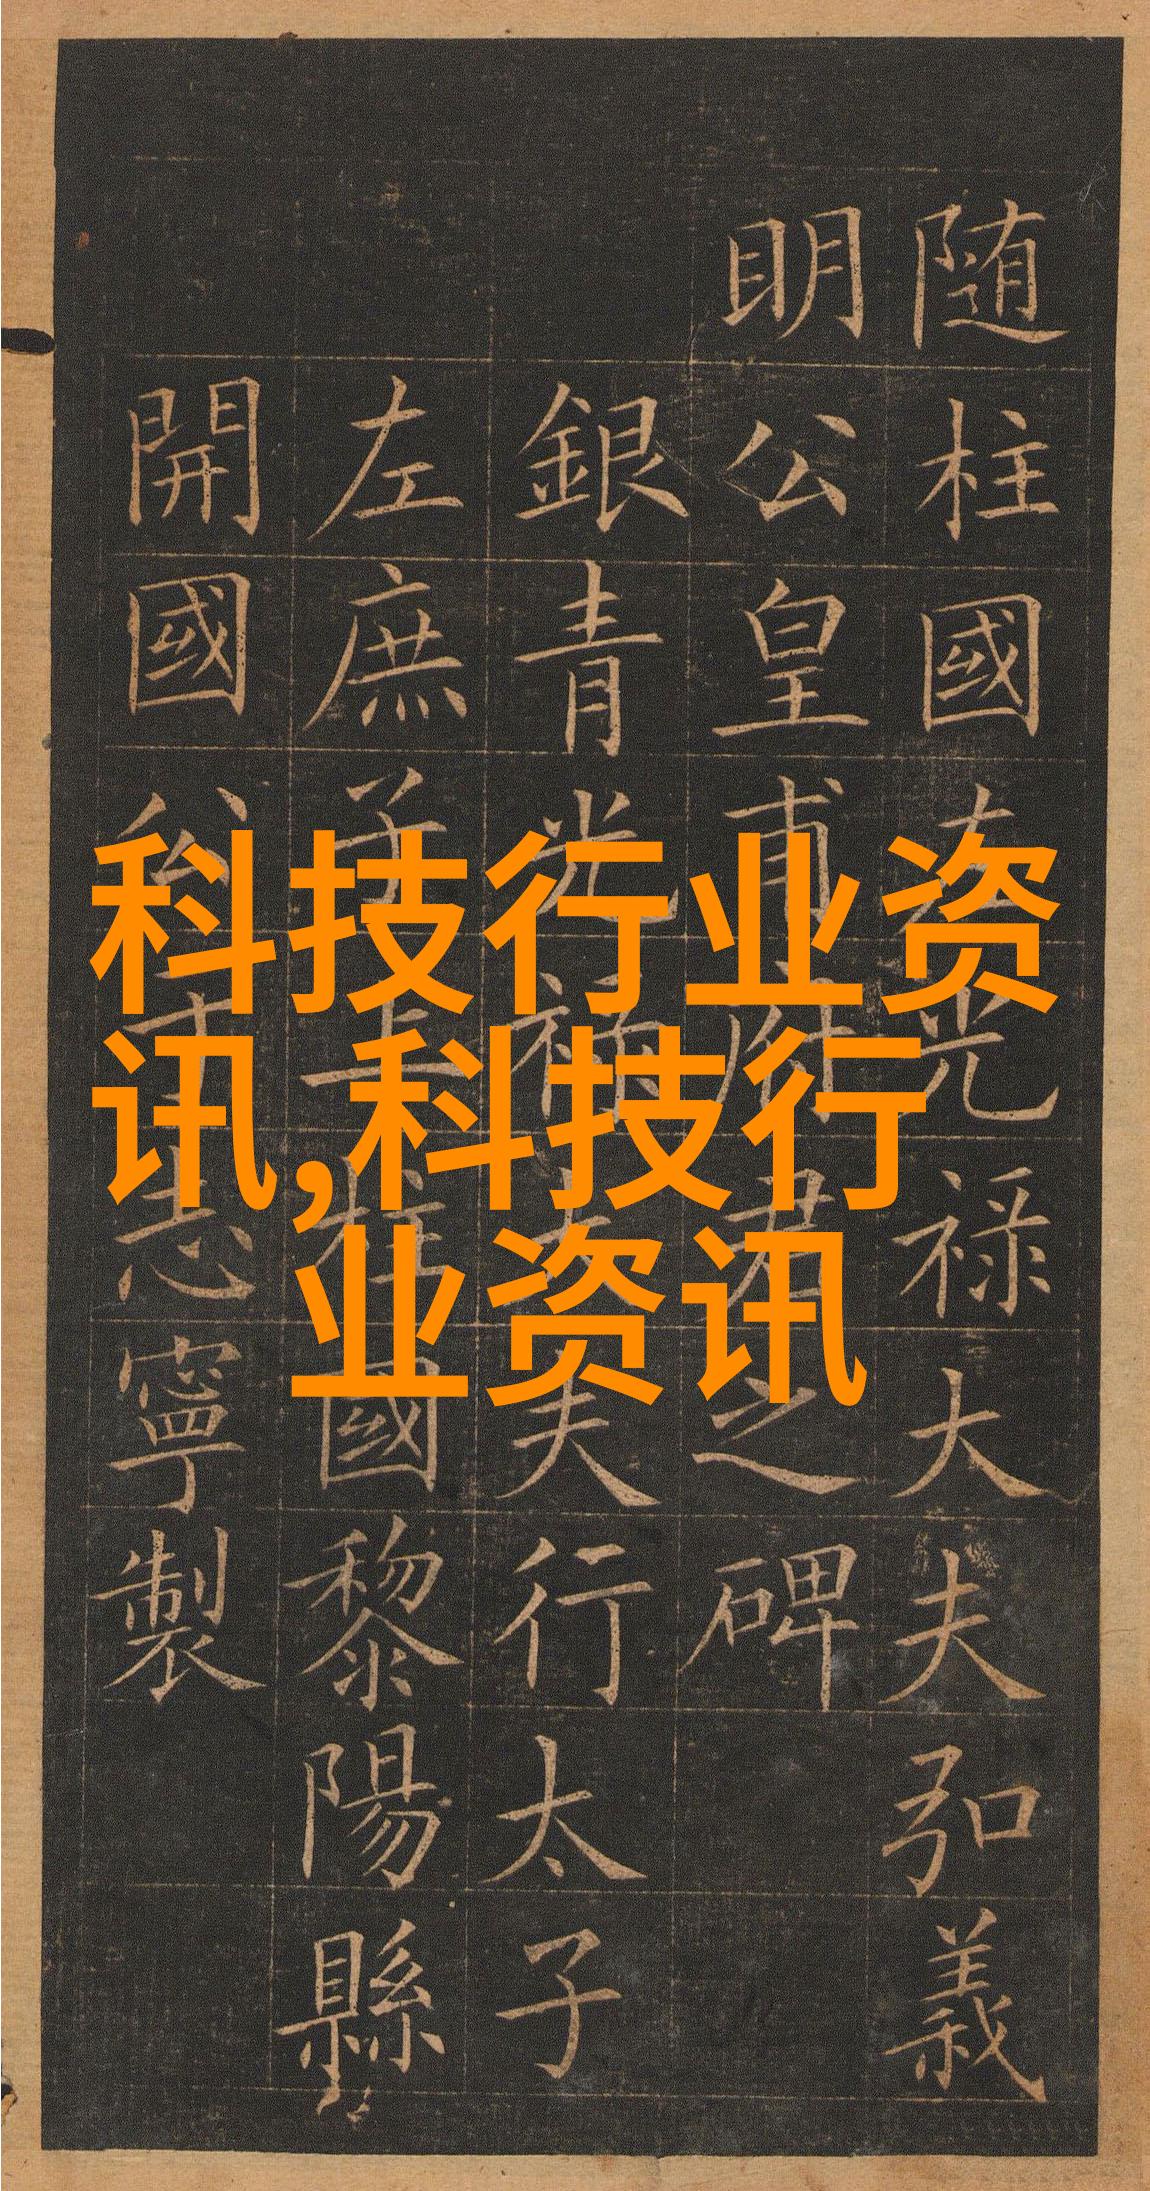 科技行业资
讯,科技行
业资讯
随柱國左光禄大夫弘義
明公皇甫府君之碑
銀青光禄大夫行太子
左庶子上柱國黎陽縣
開國公于志寧製